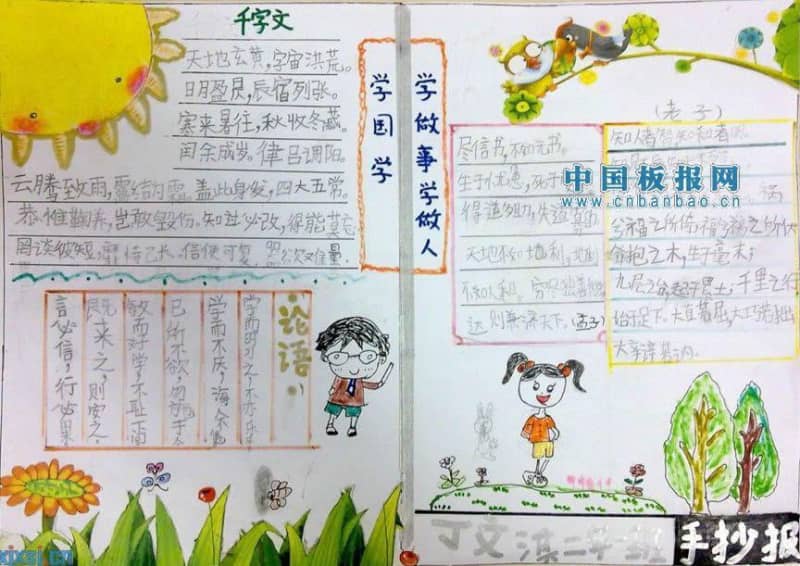 千字文
天地玄黄,宇宙洪荒。
日月盈昃,辰宿列张。
寒来暑往,秋收冬藏。
闰余成岁。律吕调阳。
云腾致雨,露结为霜。盖此身发,四大五常。
恭惟鞠养,岂敢毁伤。知过必改,得能莫忘
罔谈彼短,靡恃己长。信使可复,器欲难量。
学国学
学做事学做人
论语
学而时习之,不亦乐乎
学而不厌,诲人不倦
己所不欲,勿施于人
敏而好学,不耻下问
既来之,则安之
言必信,行必果
尽信书,不如无书。
生于忧患,死于
得道多助,失道寡助
天地不如地利,地利
不如人和。穷尽独善其
达则兼济天下。(孟子)
(老子)
知人者智知和者明。
祸
兮福之所倚福兮祸之所伏
合抱之木,生于毫末;
九层之台,起于垒土;千里之行
始于足下。大直若屈,大巧若拙
中国板报网
www.cnbanbao.cn
丁文
二年 班
手抄报